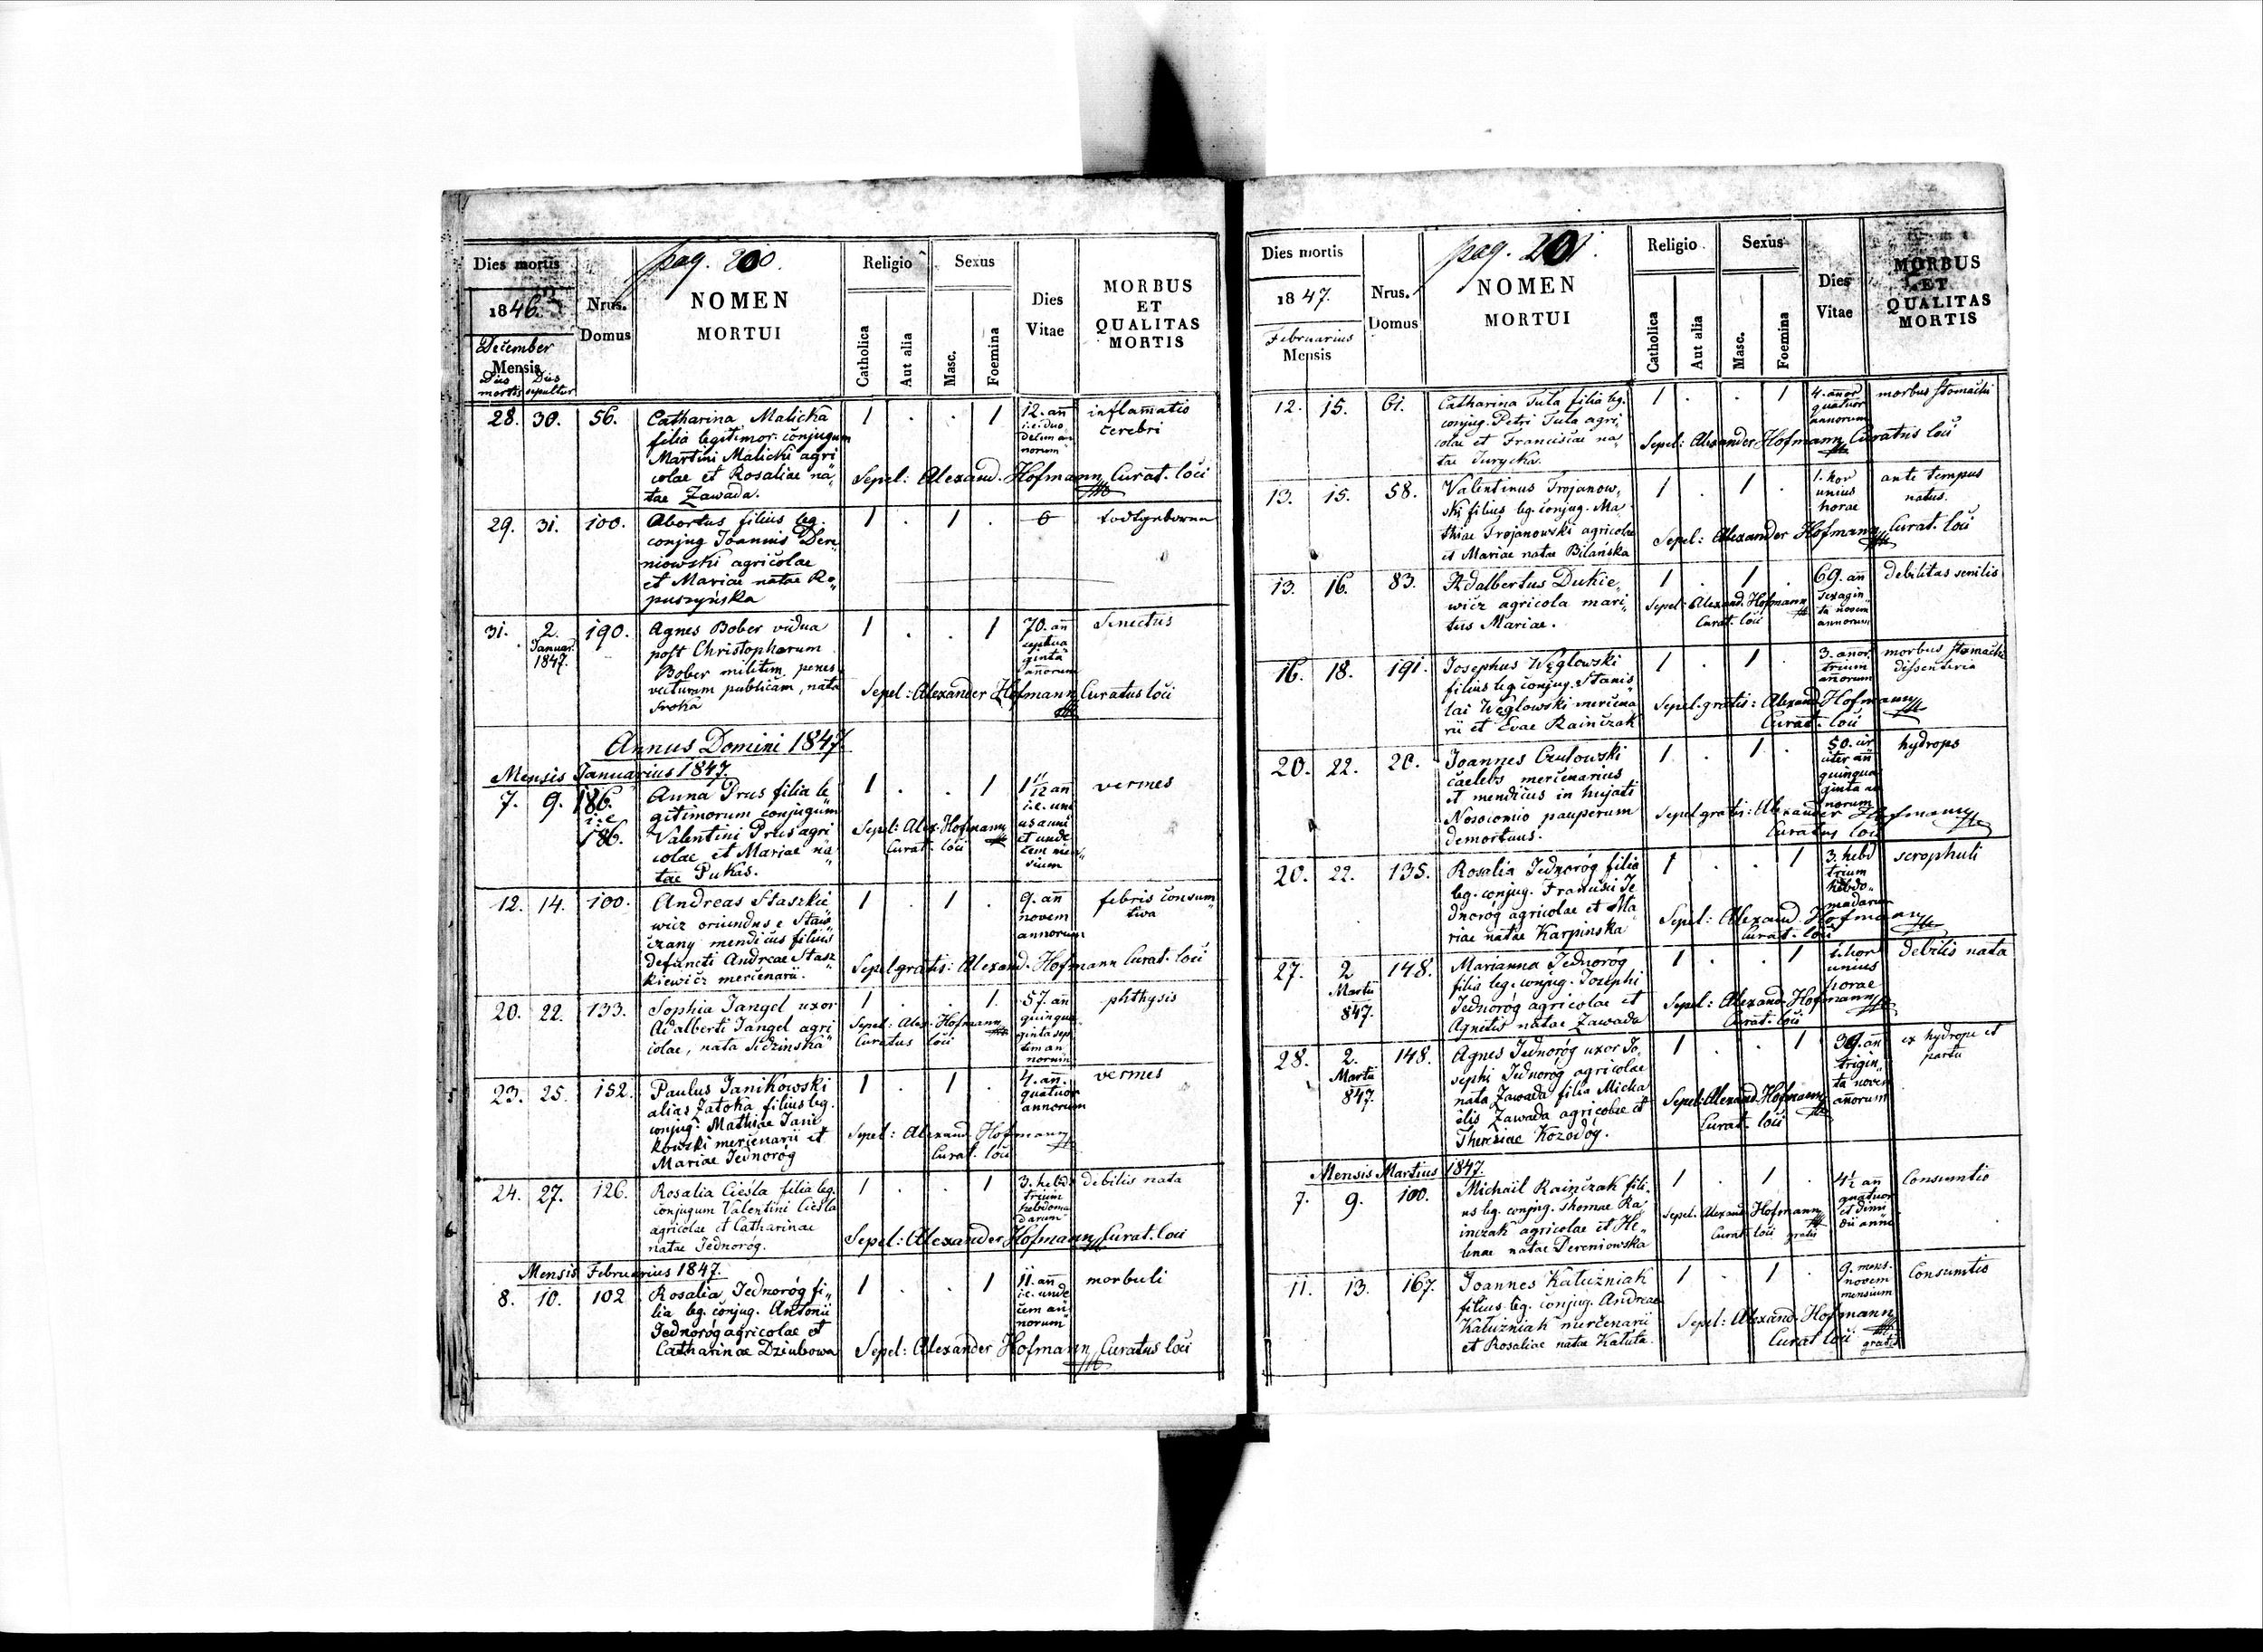 pag. 200.
Dies mortis
1846.
December
Mensis
Dies mortis
Dies sepultur
Nrus.
Domus
NOMEN
MORTUI
Religio
Catholica
Aut alia
Sexus
Masc.
Foemina
Dies
Vitae
MORBUS
ET
QUALITAS
MORTIS
28. 30. 56. Catharina Malicka 1 . . 1 12. añ inflam̄atio
filia legitimor. conjugum i.e. duo cerebri
Martini Malicki agri decim an
colae et Rosaliae na norum
tae Zawada.
Sepel: Alexand. Hofmann Curat. loci
29. 31. 100. Abortus filius leg. 1 . 1 . 0 todtgeboren
conjug Joannis Dere
niowski agricolae
et Mariae natae Ro
puszyńska
31. 2. 190. Agnes Bober vidua 1 . . 1 70. añ Senectus
Januar. post Christophorum septua
1847. Bober militem penes ginta
vecturam publicam, nata añorum
Sroka
Sepel: Alexander Hofmann Curatus loci
Annus Domini 1847.
Mensis Januarius 1847.
7. 9. 186. Anna Prus filia le 1 . . 1 1 11/12 añ vermes
i.e. gitimorum conjugum i.e. uni
186. Valentini Prus agri us anni
colae et Mariae na et unde
tae Pukas. cem men
sium
Sepel: Alex. Hofmann
Curat. loci
12. 14. 100. Andreas Staszkie 1 . 1 . 9. añ febris consum
wicz oriundus e Stań novem tiva
czany mendicus filius annorum
defuncti Andreae Stasz
kiewicz mercenarii.
Sepel gratis: Alexand. Hofmann Curat. loci
20. 22. 133. Sophia Jangel uxor 1 . . 1. 57. añ phthysis
Adalberti Jangel agri quinqua
colae, nata Sidzinska ginta sep
tem an
norum
Sepel: Alex. Hofmann
Curatus loci
23. 25. 152. Paulus Janikowski 1 . 1 . 4. añ. vermes
alias Zatoka filius leg. quatuor
conjug. Mathiae Jani annorum
kowski mercenarii et
Mariae Jednoróg
Sepel: Alexand. Hofmann
Curat. loci
24. 27. 126. Rosalia Cieśla filia leg. 1 . . 1 3. hebd. debilis nata
conjugum Valentini Cieśla trium
agricolae et Catharinae hebdoma
natae Jednoróg. darum
Sepel: Alexander Hofmann Curat. loci
Mensis Februarius 1847.
8. 10. 102 Rosalia Jednoróg fi 1 . . 1 11. añ morbuli
lia leg. conjug. Antonii i.e. unde
Jednoróg agricolae et cem an
Catharinae Dziubowa norum
Sepel: Alexander Hofmann Curatus loci
pag. 201.
Dies mortis
1847.
Februarius
Mensis
Nrus.
Domus
NOMEN
MORTUI
Religio
Catholica
Aut alia
Sexus
Masc.
Foemina
Dies
Vitae
MORBUS
ET
QUALITAS
MORTIS
12. 15. 61. Catharina Tula filia leg. 1 . . 1 4. añor morbus stomachi
conjug. Petri Tula agri quatuor
colae et Franciscae na annorum
tae Jurycka.
Sepel: Alexander Hofmann Curatus loci
13. 15. 58. Valentinus Trojanow 1 . 1 . 1. hor ante tempus
ski filius leg. conjug. Ma unius natus.
thiae Trojanowski agricolae horae
et Mariae natae Bilańska
Sepel: Alexander Hofmann Curat. loci
13. 16. 83. Adalbertus Dukie 1 . 1 . 69. añ debilitas senilis
wicz agricola mari sexagin
tus Mariae. ta novem
annorum
Sepel: Alexand. Hofmann
Curat. loci
16. 18. 191. Josephus Węglowski 1 . 1 . 3. añor. morbus stomachi
filius leg. conjug. Stanis trium dissenteria
lai Węglowski mercena añorum
rii et Evae Rainczak
Sepel. gratis: Alexand. Hofmann
Curat. loci
20. 22. 20. Joannes Czulowski 1 . 1 . 50. cir hydrops
caelebs mercenarius citer añ
et mendicus in hujati quinqua
Nosocomio pauperum ginta an
demortuus. norum
Sepel gratis: Alexander Hofmann
Curatus loci
20. 22. 135. Rosalia Jednoróg filia 1 . . 1 3. hebd scrophuli
leg. conjug. Francisci Je trium
dnoróg agricolae et Ma hebdo
riae natae Karpinska madarum
Sepel: Alexand. Hofmann
Curat. loci
27. 2 148. Marianna Jednoróg 1 . . 1 1. hor debilis nata
Martii filia leg. conjug. Josephi unius
847. Jednoróg agricolae et horae
Agnetis natae Zawada
Sepel: Alexand. Hofmann
Curat. loci
28. 2. 148. Agnes Jednoróg uxor Jo 1 . . 1 39. añ ex hydrope et
Martii sephi Jednoróg agricolae trigin partu
847. nata Zawada filia Micha ta novem
elis Zawada agricolae et añorum
Theresiae Kozodóg.
Sepel: Alexand. Hofmann
Curat. loci
Mensis Martius 1847.
7. 9. 100. Michaël Rainczak fili 1 . 1 . 4½ añ Consumtio
us leg. conjug. Thomae Ra quatuor
inczak agricolae et He et dimi
lenae natae Dereniowska dii anni
Sepel. Alexand. Hofmann
Curat. loci gratis
11. 13. 167. Joannes Kałużniak 1 . 1 . 9. mens. Consumtio
filius leg. conjug. Andreae novem
Kałużniak mercenarii mensium
et Rosaliae natae Kałuta.
Sepel: Alexand. Hofmann
Curat loci gratis